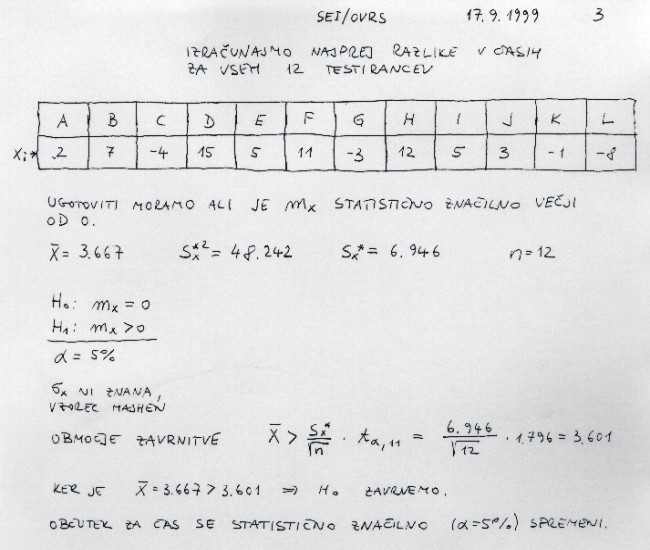 SEI/OVRS 17.9.1999 3
IZRAČUNAJMO NAJPREJ RAZLIKE V ČASIH
ZA VSEH 12 TESTIRANCEV
A B C D E F G H I J K L
Xi→ 2 7 -4 15 5 11 -3 12 5 3 -1 -8
UGOTOVITI MORAMO ALI JE mx STATISTIČNO ZNAČILNO VEČJI
OD 0.
X̄ = 3.667 Sx*² = 48.242 Sx* = 6.946 n = 12
H₀: mx = 0
H₁: mx > 0
α = 5%
σx NI ZNANA,
VZOREC MAJHEN
OBMOČJE ZAVRNITVE X̄ > Sx*/√n · tα,11 = 6.946/√12 · 1.796 = 3.601
KER JE X̄ = 3.667 > 3.601 ⇒ H₀ ZAVRNEMO.
OBČUTEK ZA ČAS SE STATISTIČNO ZNAČILNO (α=5%) SPREMENI.